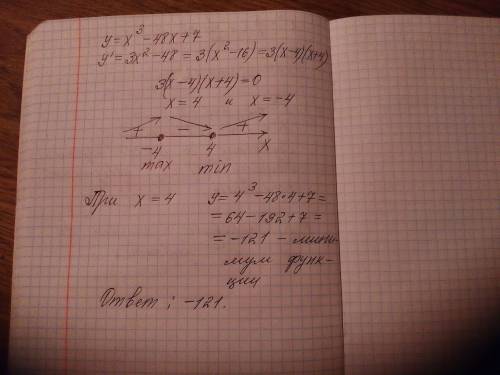 y = x³ - 48x + 7
y' = 3x² - 48 = 3(x² - 16) = 3(x-4)(x+4)
3(x-4)(x+4) = 0
x = 4 и x = -4
+ - +
-4 4 x
max min
При x = 4 y = 4³ - 48*4 + 7 =
= 64 - 192 + 7 =
= -121 - мини-
мум функ-
ции
Ответ: -121.